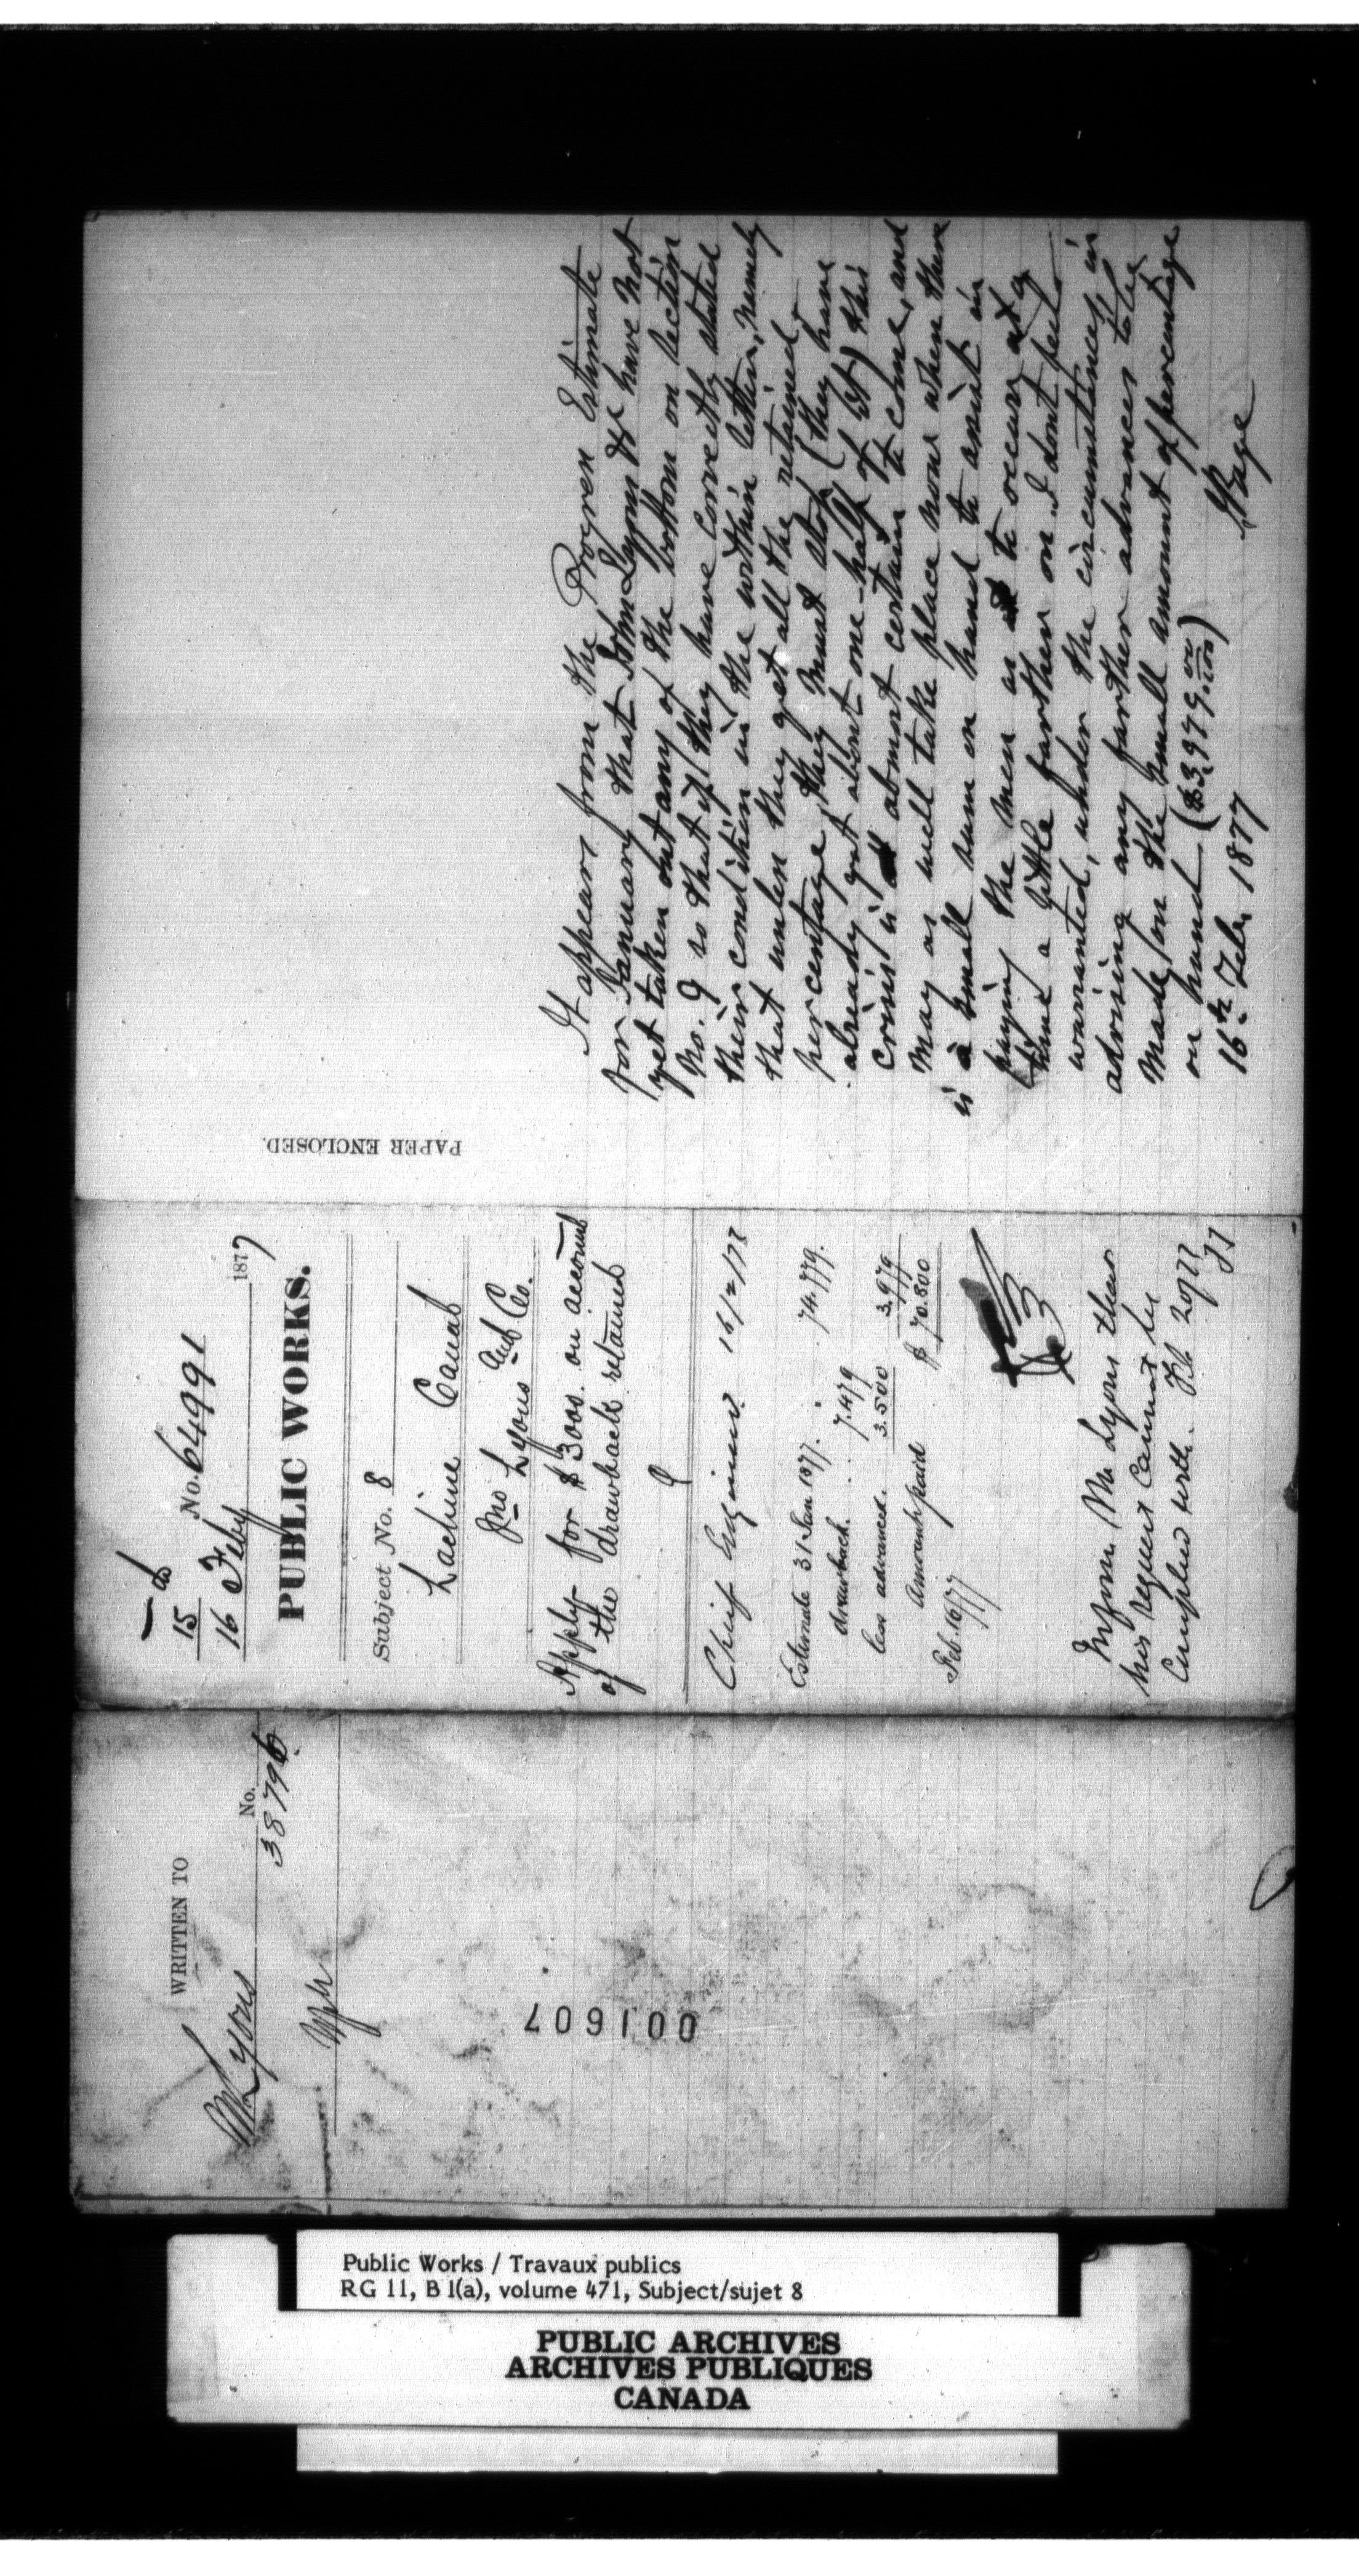 WRITTEN TO
Mr Lyons
No.
38796
001607
15
16 Feby
No. 64991
1877
PUBLIC WORKS.
Subject No. 8
Lachine Canal
Jno Lyons and Co.
Apply for $3000. on account
of the drawback retained
Chief Engineer. 16/2/77
Estimate 31 Jan 1877. . 74.779.
drawback. . . . 7.479
less advanced. 3.500 3.979
Amount paid $ 70.800
Feb. 16/77
Inform Mr Lyons that
his request cannot be
Complied with. Feb 20/77
PAPER ENCLOSED.
It appears from the Progress Estimate
for January that John Lyons & Co have not
yet taken out any of the bottom on Section
No. 9 so that if they have correctly stated
their condition in the within letter, namely
that unless they get all the retained
percentage, they must stop (they have
already got about one-half of it) this
crisis is almost certain to come, and
may as well take place now when there
is a small sum on hand to assist in
paying the men as to occur at a
time a little farther on. I dont feel
warranted, under the circumstances, in
advising any further advances to be
made on the small amount of percentage
on hand ($3,979 00/100)
16th Feb. 1877 J Page
Public Works / Travaux publics
RG 11, B 1(a), volume 471, Subject/sujet 8
PUBLIC ARCHIVES
ARCHIVES PUBLIQUES
CANADA